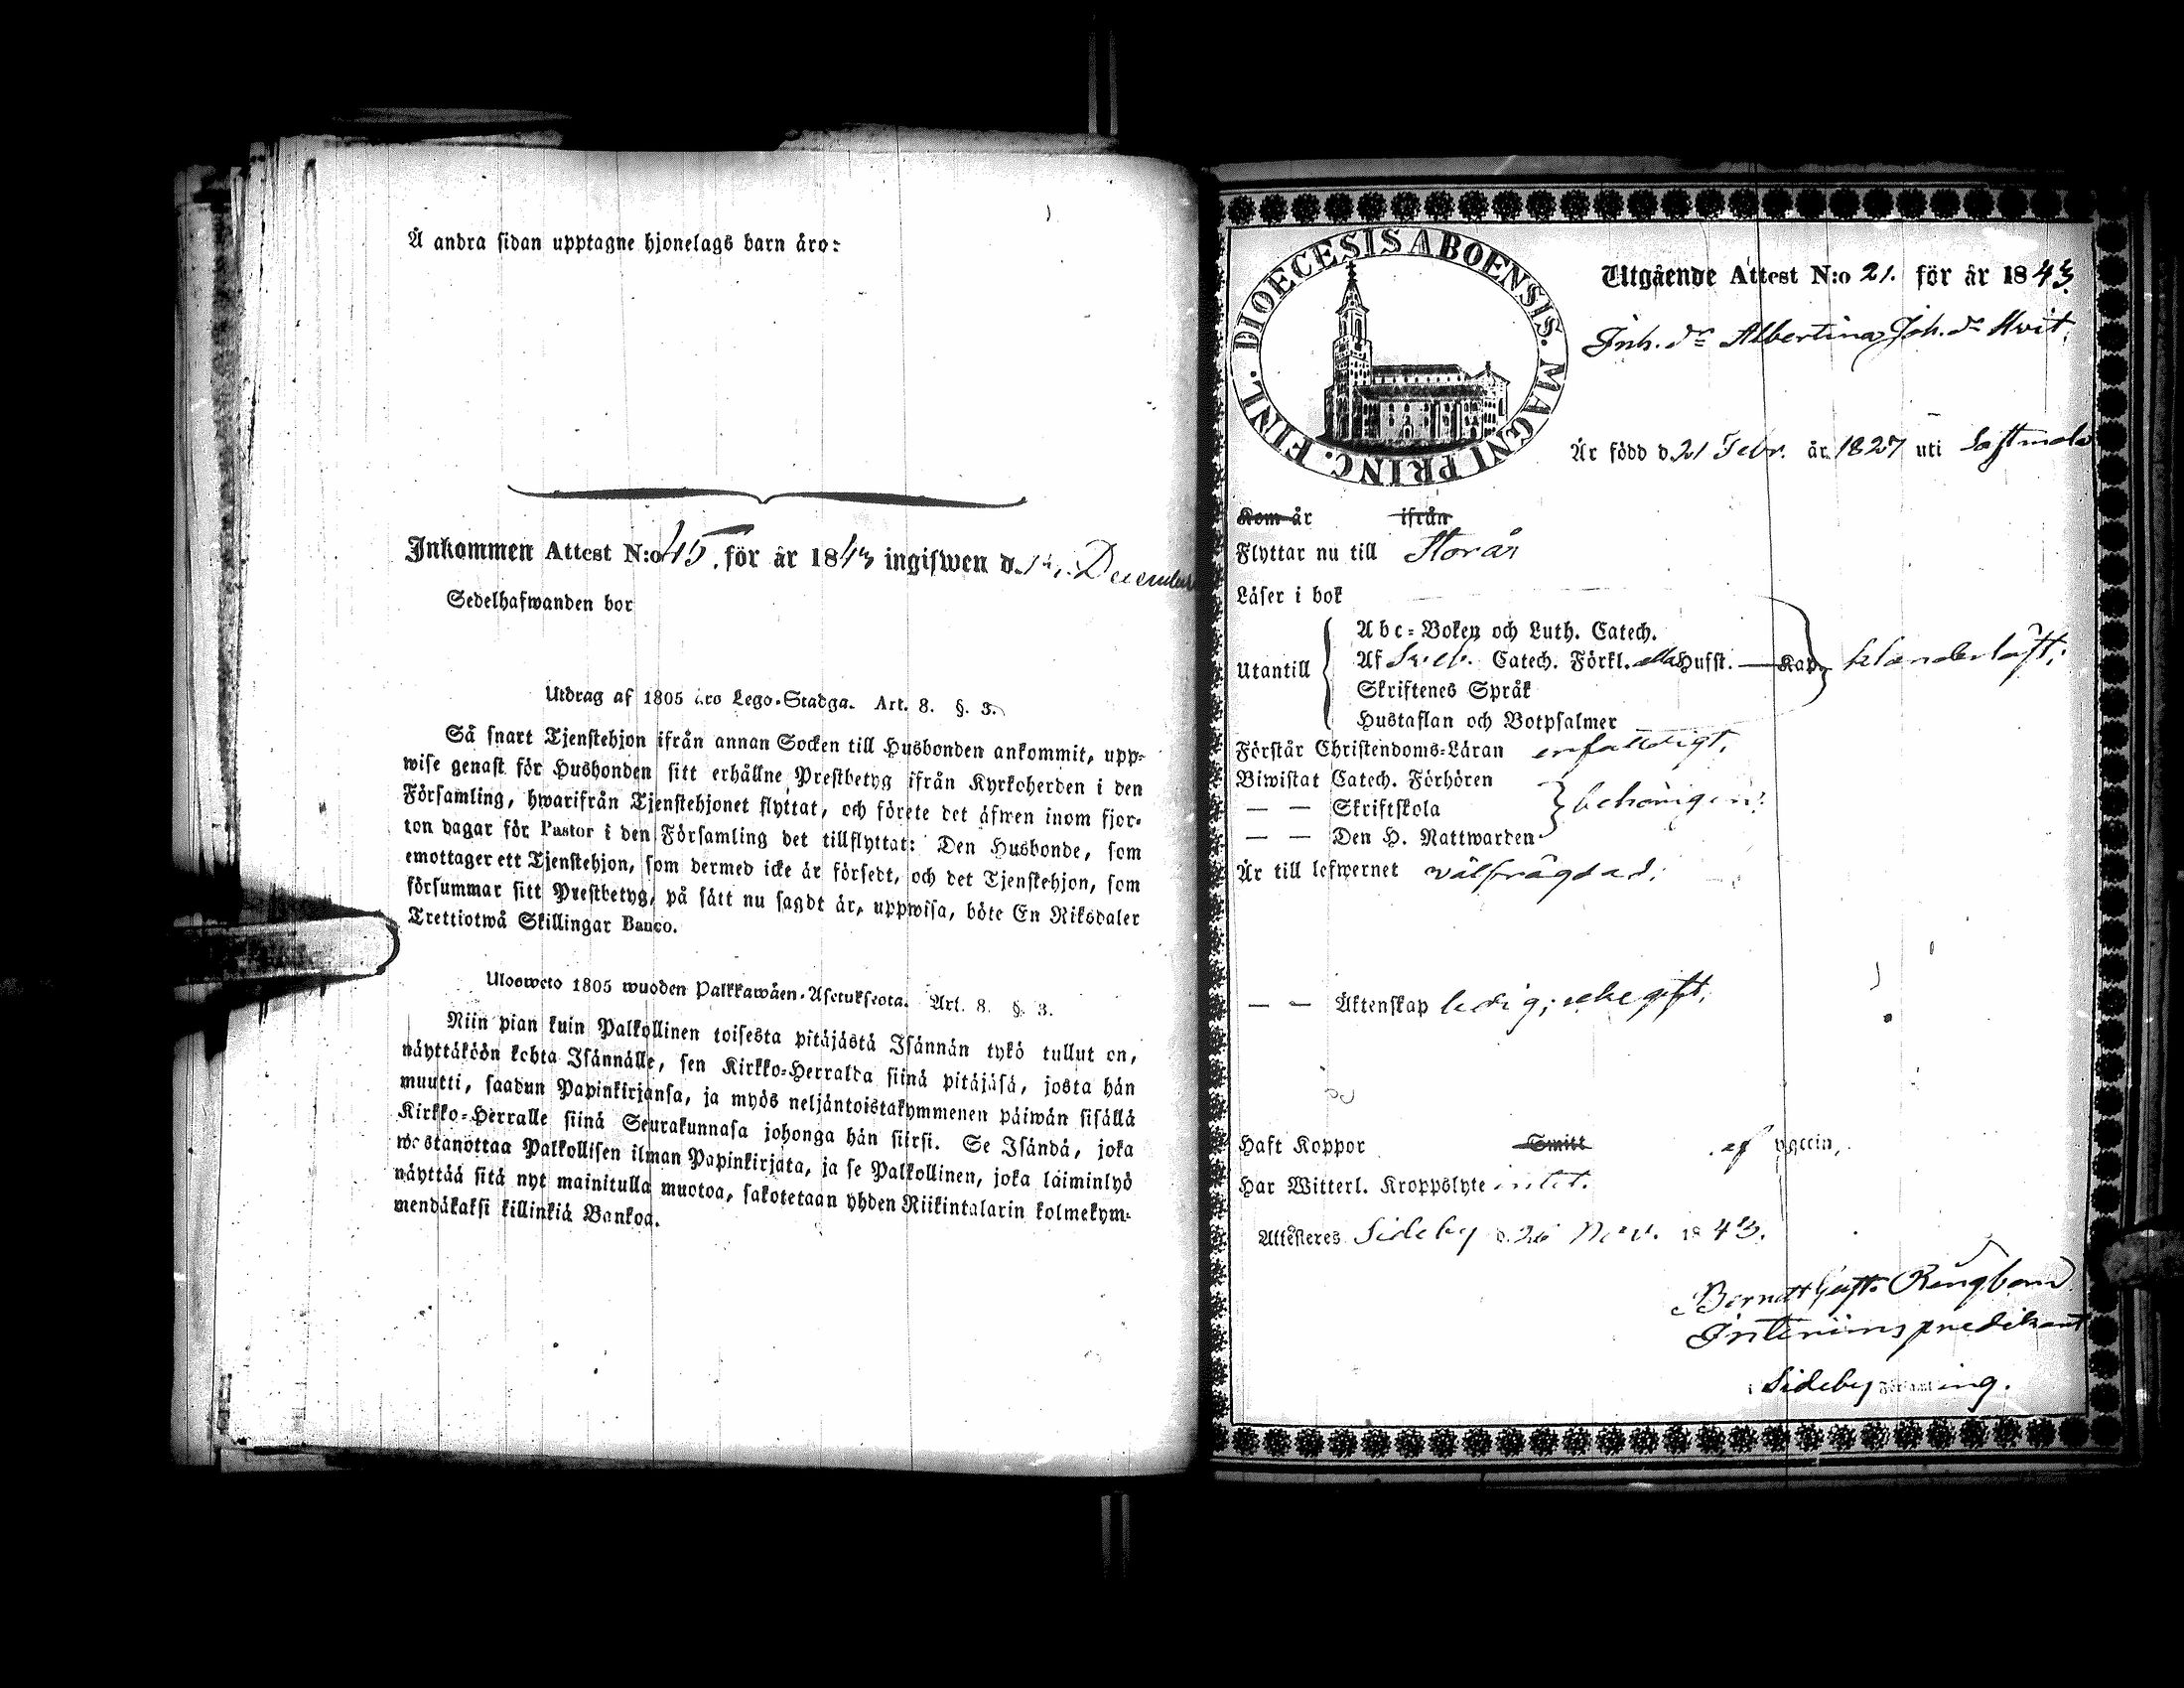 Å andra sidan upptagne hjonelags barn äro:
Inkommen Attest N:o 45. för år 1843 ingifwen d. December
Sedelhafwanden bor
Utdrag af 1805 års Lego-Stadga. Art. 8. §. 3.
Så snart Tjenstehjon ifrån annan Socken till Husbonden ankommit, upp-
wise genast för Husbonden sitt erhållne Prestbetyg ifrån Kyrkoherden i den
Församling, hwarifrån Tjenstehjonet flyttat, och förete det äfwen inom fjor-
ton dagar för Pastor i den Församling det tillflyttat: Den Husbonde, som
emottager ett Tjenstehjon, som dermed icke är försedt, och det Tjenstehjon, som
försummar sitt Prestbetyg, på sätt nu sagdt är, uppwisa, böte En Riksdaler
Trettiotwå Skillingar Banco.
Ulosweto 1805 wuoden Palkkawäen-Asetuksesta. Art. 8. §. 3.
Niin pian kuin Palkollinen toisesta pitäjästä Isännän tykö tullut on,
näyttäköön kohta Isännälle, sen Kirkko-Herralda siinä pitäjäsä, josta hän
muutti, saadun Papinkirjansa, ja myös neljäntoistakymmenen päiwän sisällä
Kirkko-Herralle siinä Seurakunnasa johonga hän siirsi. Se Isändä, joka
wastanottaa Palkollisen ilman Papinkirjata, ja se Palkollinen, joka laiminlyö
näyttää sitä nyt mainitulla muotoa, sakotetaan yhden Riikintalarin kolmekym-
mendäkaksi killinkiä Bankoa.
DIOECESIS ABOENSIS. MAGNI PRINC. FINL.
Utgående Attest N:o 21. för år 1843
Inh. dr Albertina Joh. dr Hvit.
Är född d. 21 Febr. år 1827 uti
Kom år ifrån
Flyttar nu till Storån
Läser i bok
Abc-Boken och Luth. Catech.
Utantill Af Sveb. Catech. Förkl. alla Hufst. Kap. klanderlöst;
Skriftenes Språk
Hustaflan och Botpsalmer
Förstår Christendoms-Läran enfaldigt,
Biwistat Catech. Förhören
— — Skriftskola behörigen:
— — Den H. Nattwarden
Är till lefwernet välfrägdad;
— — Äktenskap ledig; icke gift.
Haft Koppor Smitt af vaccin,
Har Witterl. Kroppslyte intet.
Attesteres Sideby d. 26 Nov. 1843.
Berndt Gust. Ringbom
Interimspredikant
i Sideby Församling.